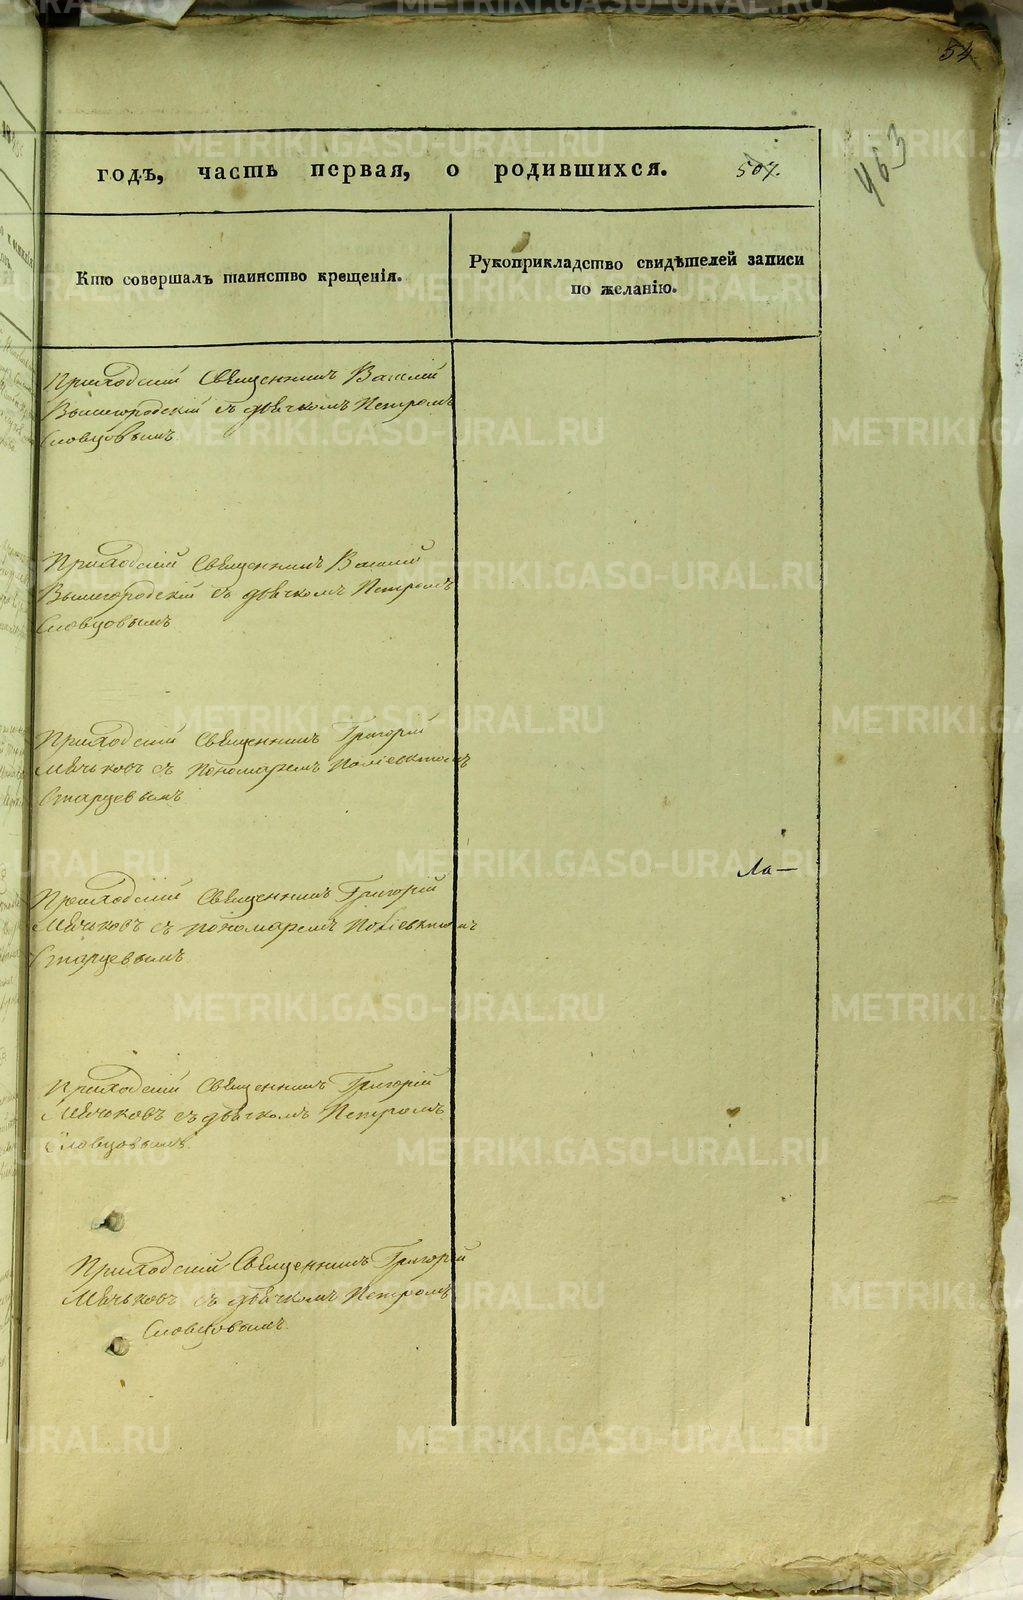 54
463
годъ, часть первая, о родившихся. 507.
Кто совершалъ таинство крещенія.
Рукоприкладство свидѣтелей записи
по желанію.
Приходскій Священникъ Василій
Вышегородскій съ дьячкомъ Петромъ
Словцовымъ
Приходскій Священникъ Василій
Вышегородскій съ дьячкомъ Петромъ
Словцовымъ
Приходскій Священникъ Григорій
Мячьковъ съ Пономаремъ Поліевктомъ
Старцевымъ
Приходскій Священникъ Григорій
Мячьковъ съ пономаремъ Поліевктомъ
Старцевымъ
Ла—
Приходскій Священникъ Григорій
Мячьковъ съ дьячкомъ Петромъ
Словцовымъ
Приходскій Священникъ Григорій
Мячьковъ съ дьячкомъ Петромъ
Словцовымъ.
METRIKI.GASO-URAL.RU